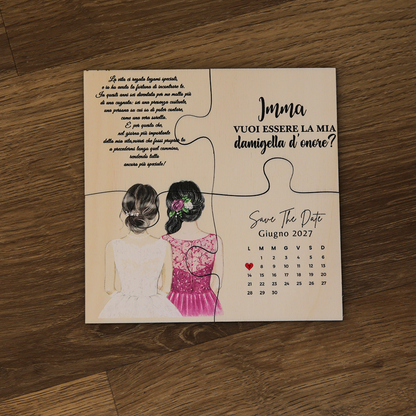 La vita ci regala legami speciali,
e io ho avuto la fortuna di incontrare te.
In questi anni sei diventata per me molto più
di una cognata: sei una presenza costante,
una persona su cui so di poter contare,
come una vera sorella.
E per questo che,
nel giorno più importante
della mia vita, vorrei che fossi proprio tu
a precedermi lungo quel cammino,
rendendo tutto
ancora più speciale!
Imma
VUOI ESSERE LA MIA
damigella d'onore?
Save The Date
Giugno 2027
L M M G V S D
1 2 3 4 5 6
8 9 10 11 12 13
14 15 16 17 18 19 20
21 22 23 24 25 26 27
28 29 30